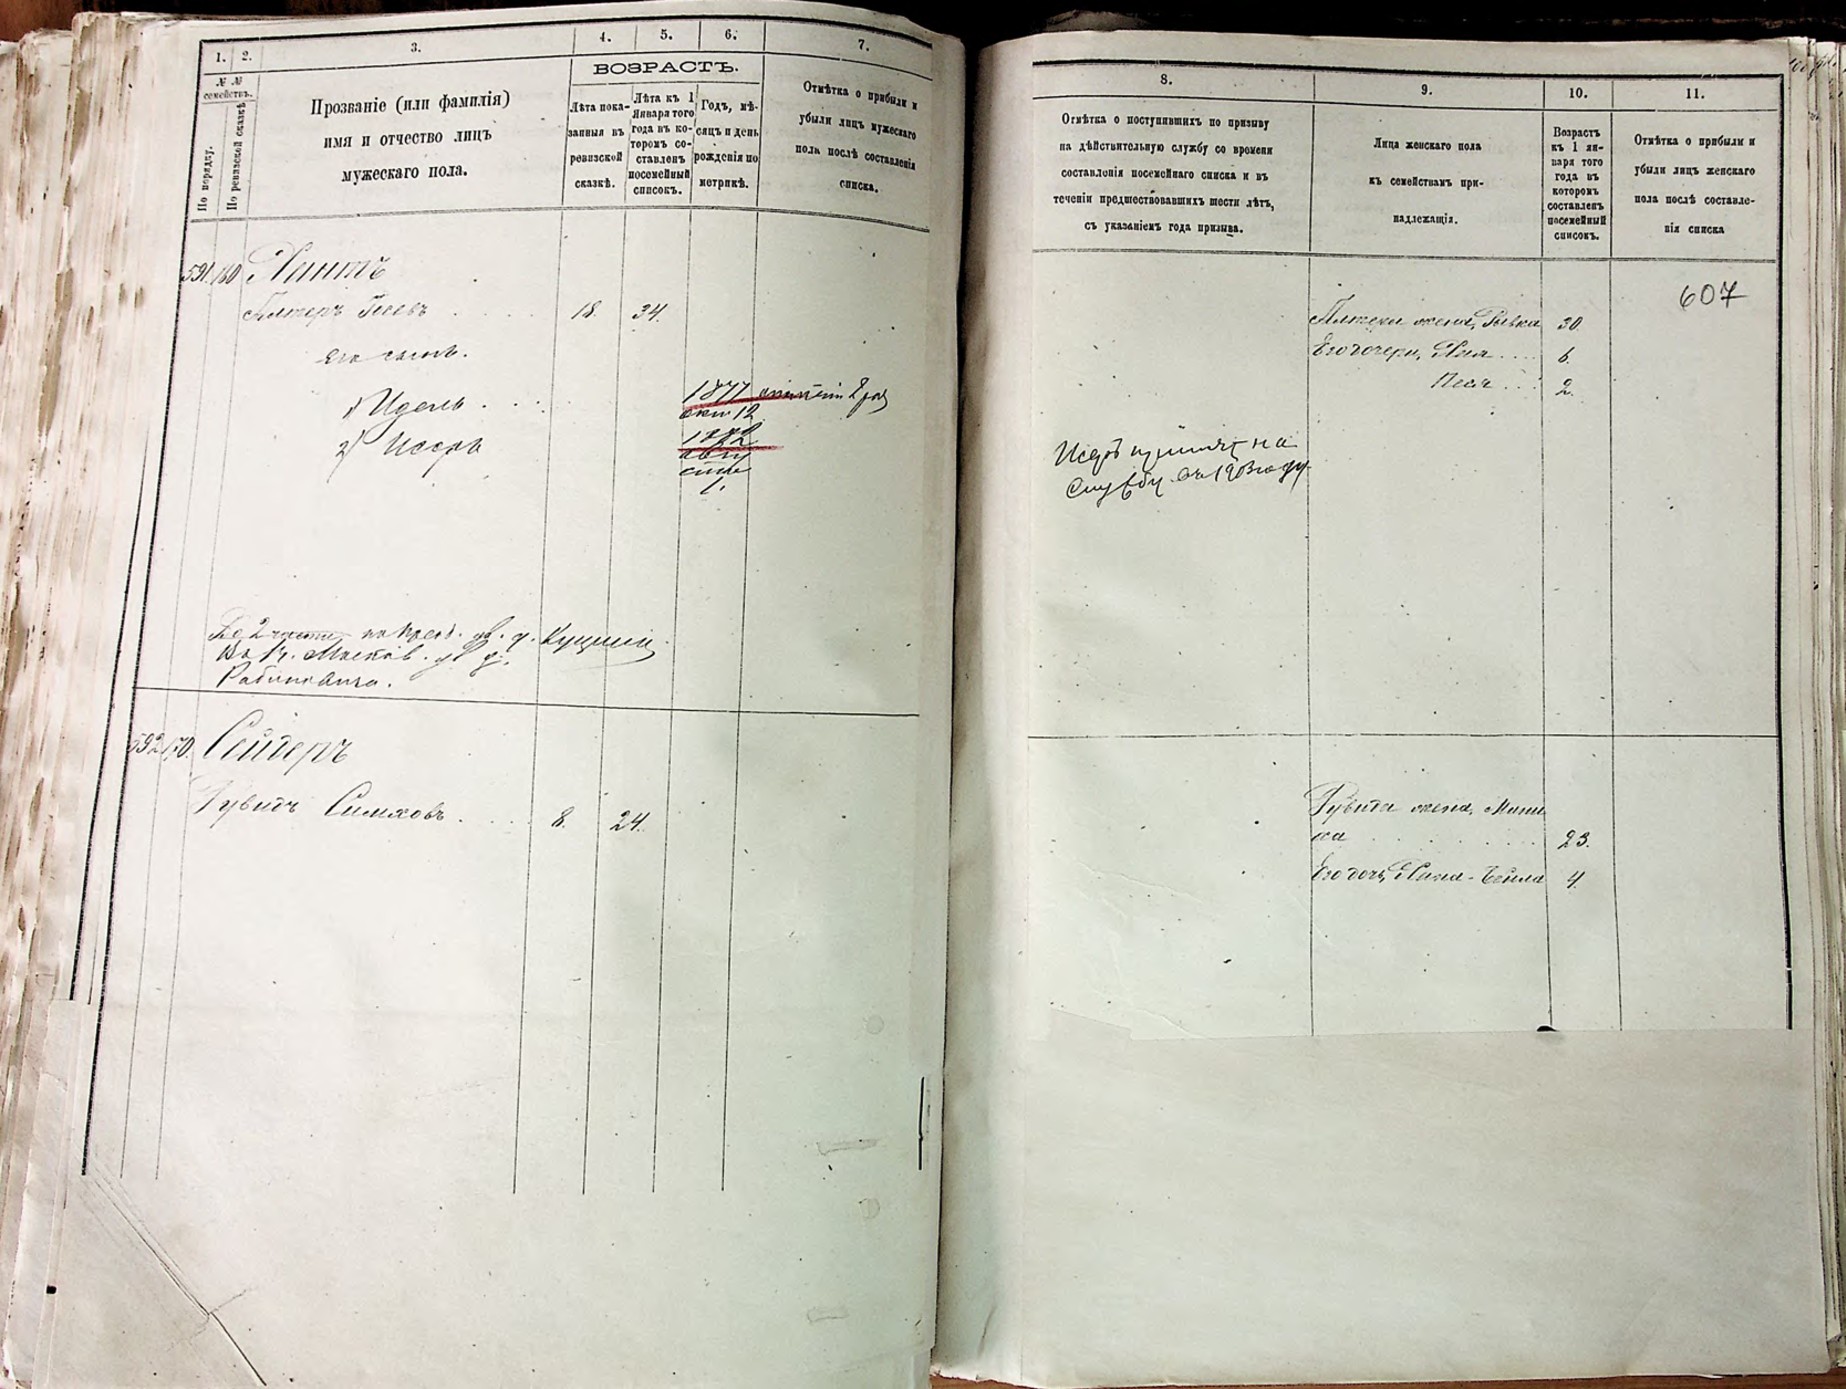 1. 2. 3. 4. 5. 6. 7.
№ №
семействъ.
По порядку.
По ревизской сказкѣ
Прозваніе (или фамилія)
имя и отчество лицъ
мужескаго пола.
ВОЗРАСТЪ.
Лѣта пока-
занныя въ
ревизской
сказкѣ.
Лѣта къ 1
Января того
года въ ко-
торомъ со-
ставленъ
посемейный
списокъ.
Годъ, мѣ-
сяцъ и день
рожденія по
метрикѣ.
Отмѣтка о прибыли и
убыли лицъ мужескаго
пола послѣ составленія
списка.
591 160
Алтеръ 18. 34.
Его сынъ.
1) Идель 1877
окт 12
2) Иссеръ
авгу
ста
1.
До 2 по д. Кущили
Москов.
Рабиновича.
592
Сендеръ
Рувинъ Симховъ 8. 24.
8. 9. 10. 11.
Отмѣтка о поступившихъ по призыву
на дѣйствительную службу со времени
составленія посемейнаго списка и въ
теченіи предшествовавшихъ шести лѣтъ,
съ указаніемъ года призыва.
Лица женскаго пола
къ семействамъ при-
надлежащія.
Возрастъ
къ 1 ян-
варя того
года въ
которомъ
составленъ
посемейный
списокъ.
Отмѣтка о прибыли и
убыли лицъ женскаго
пола послѣ составле-
нія списка
607
Алтера жена, Рывка 30.
Его дочери, Хая 6.
Песя 2.
Исеръ принятъ на
службу въ 1903 году
Рувина жена, Мини
ха 23.
Его дочь, Хана-Бейла 4.